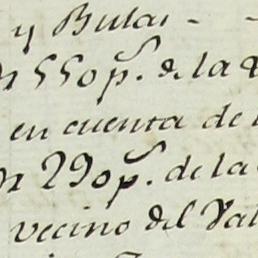 y Bulas
550 p.^s de la
en cuenta de
290 p.^s de la
vecino del Val